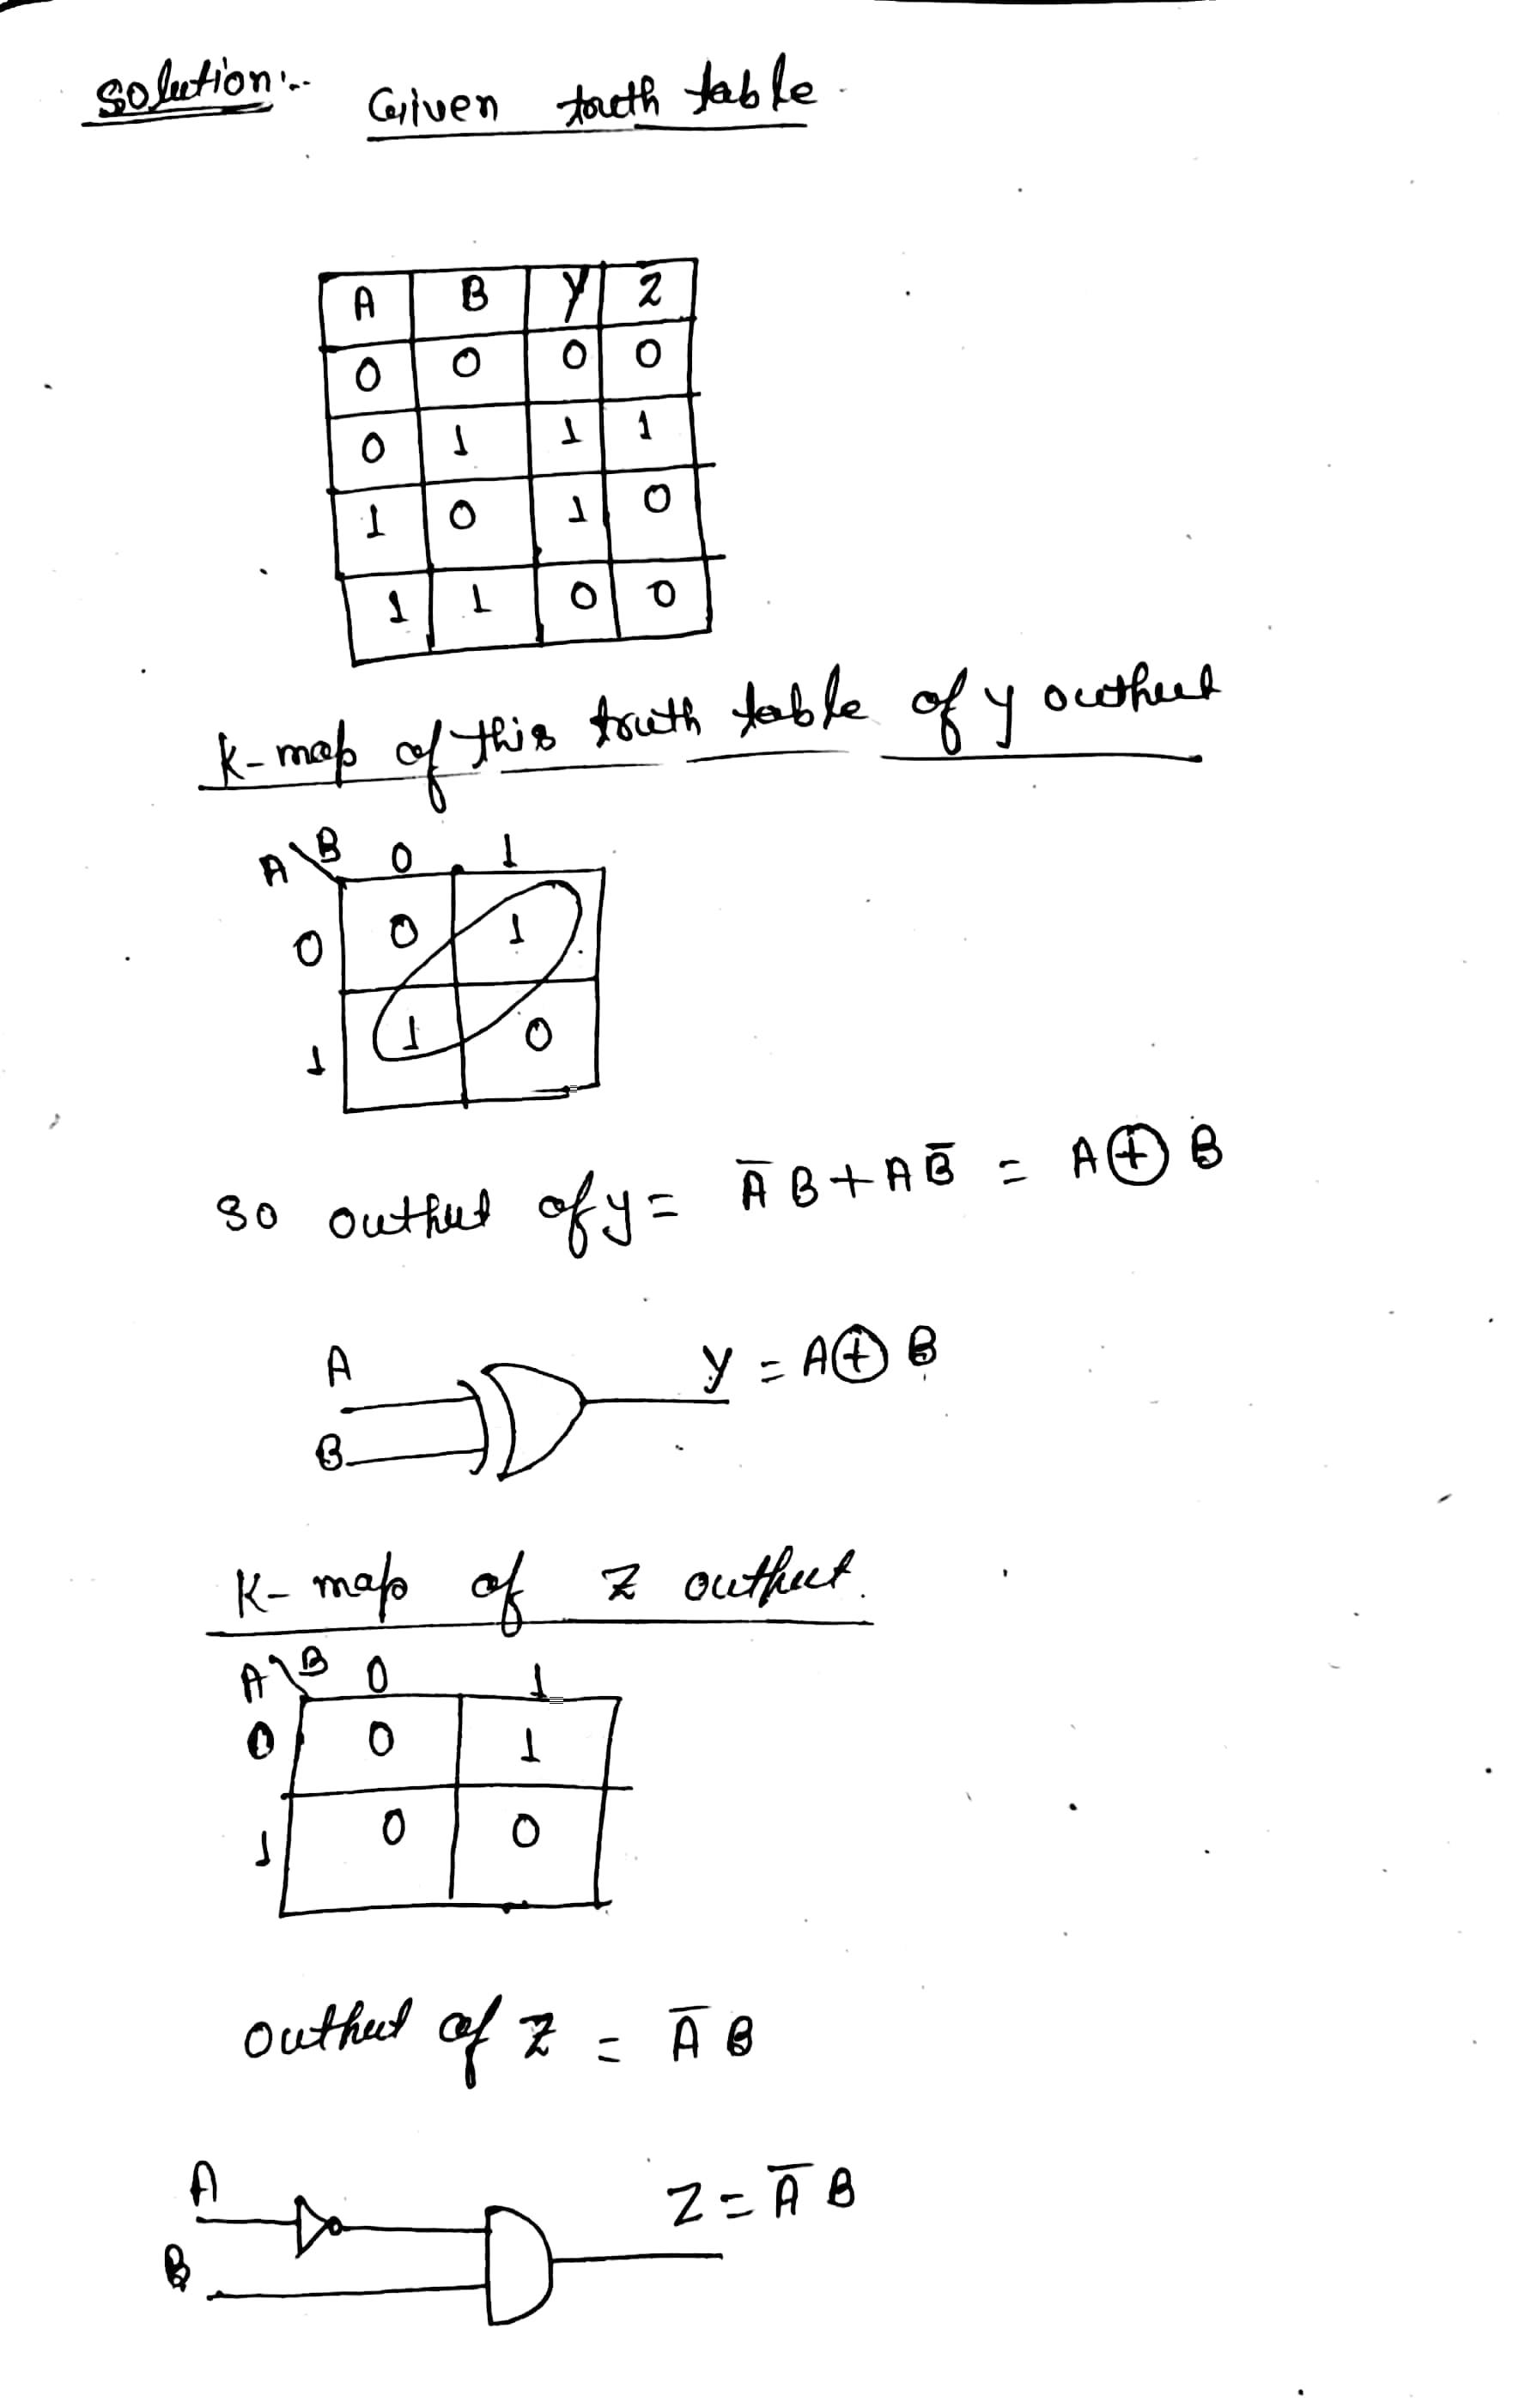 Solution:- Given truth table
A B Y Z
0 0 0 0
0 1 1 1
1 0 1 0
1 1 0 0
K-map of this truth table of y output
A \ B 0 1
0 0 1
1 1 0
so output of y = A̅ B + A B̅ = A ⊕ B
A
y = A ⊕ B
B
K-map of Z output.
A \ B 0 1
0 0 1
1 0 0
output of Z = A̅ B
A
Z = A̅ B
B